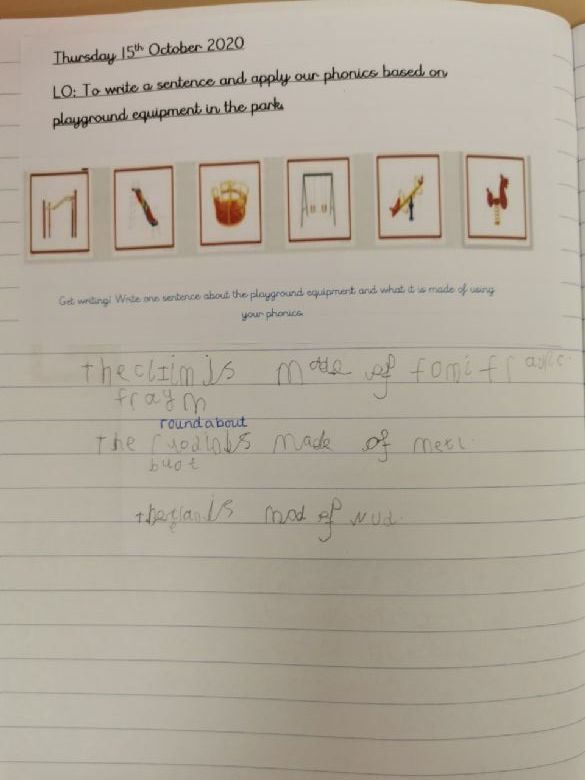 Thursday 15th October 2020
LO: To write a sentence and apply our phonics based on
playground equipment in the park
Get writing! Write one sentence about the playground equipment and what it is made of using
your phonics.
the is made of
fraym
roundabout
the made of metl.
buot
is mod of wud.